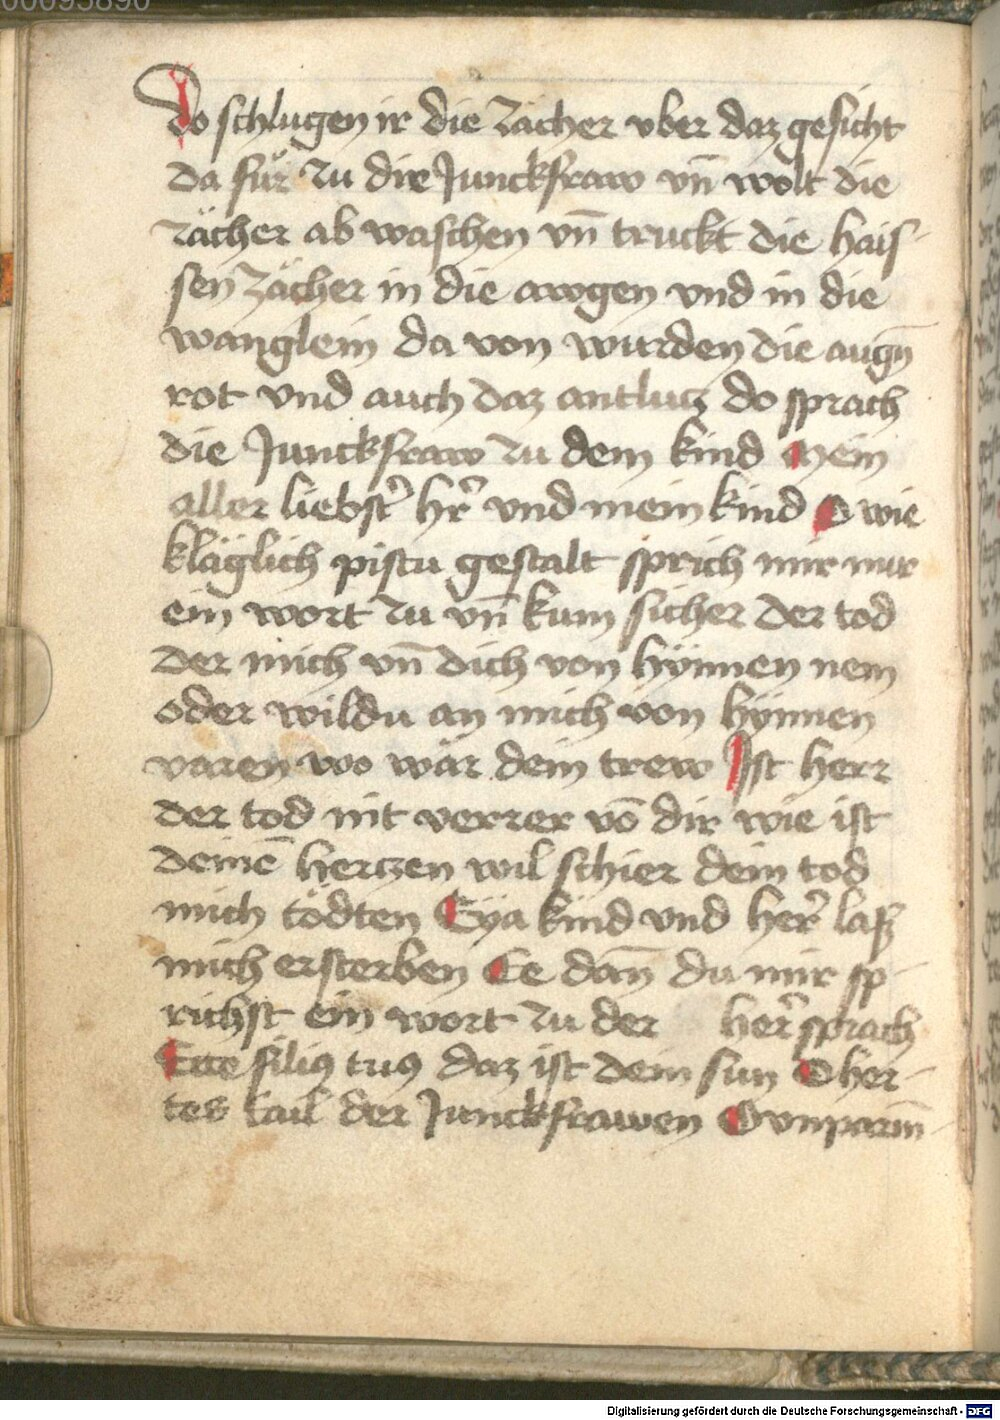 00095890
Do schlugen ir die zächer vber daz gesicht
da für zu die Junckfraw vn̄ wolt die
zächer ab waschen vn̄ truckt die hais-
sen zächer in die awgen vnd in die
wanglein da von wurden die augn̄
rot vnd auch daz antlucz do sprach
die Junckfraw zu dem kind Mein
aller liebst̾ hr̾ vnd mein kind O wie
kläglich pistu gestalt sprich mir nur
ein wort zu vn̄ kum sicher der tod
der mich vn̄ dich von hÿnnen nem
oder wildu an mich von hÿnnen
varen wo wär dein trew Ist herr
der tod nit verrer vō dir wie ist
deinē hertzen wil schier dein tod
mich tödten Eya kind vnd her̾ laß
mich ersterben Ee dan̄ du mir sp-
richst ein wort zu der her̾ sprach
Ecce filiꝰ tuꝰ daz ist dein sun O her-
tes tail der Junckfrawen O vnparm̄-
Digitalisierung gefördert durch die Deutsche Forschungsgemeinschaft - DFG